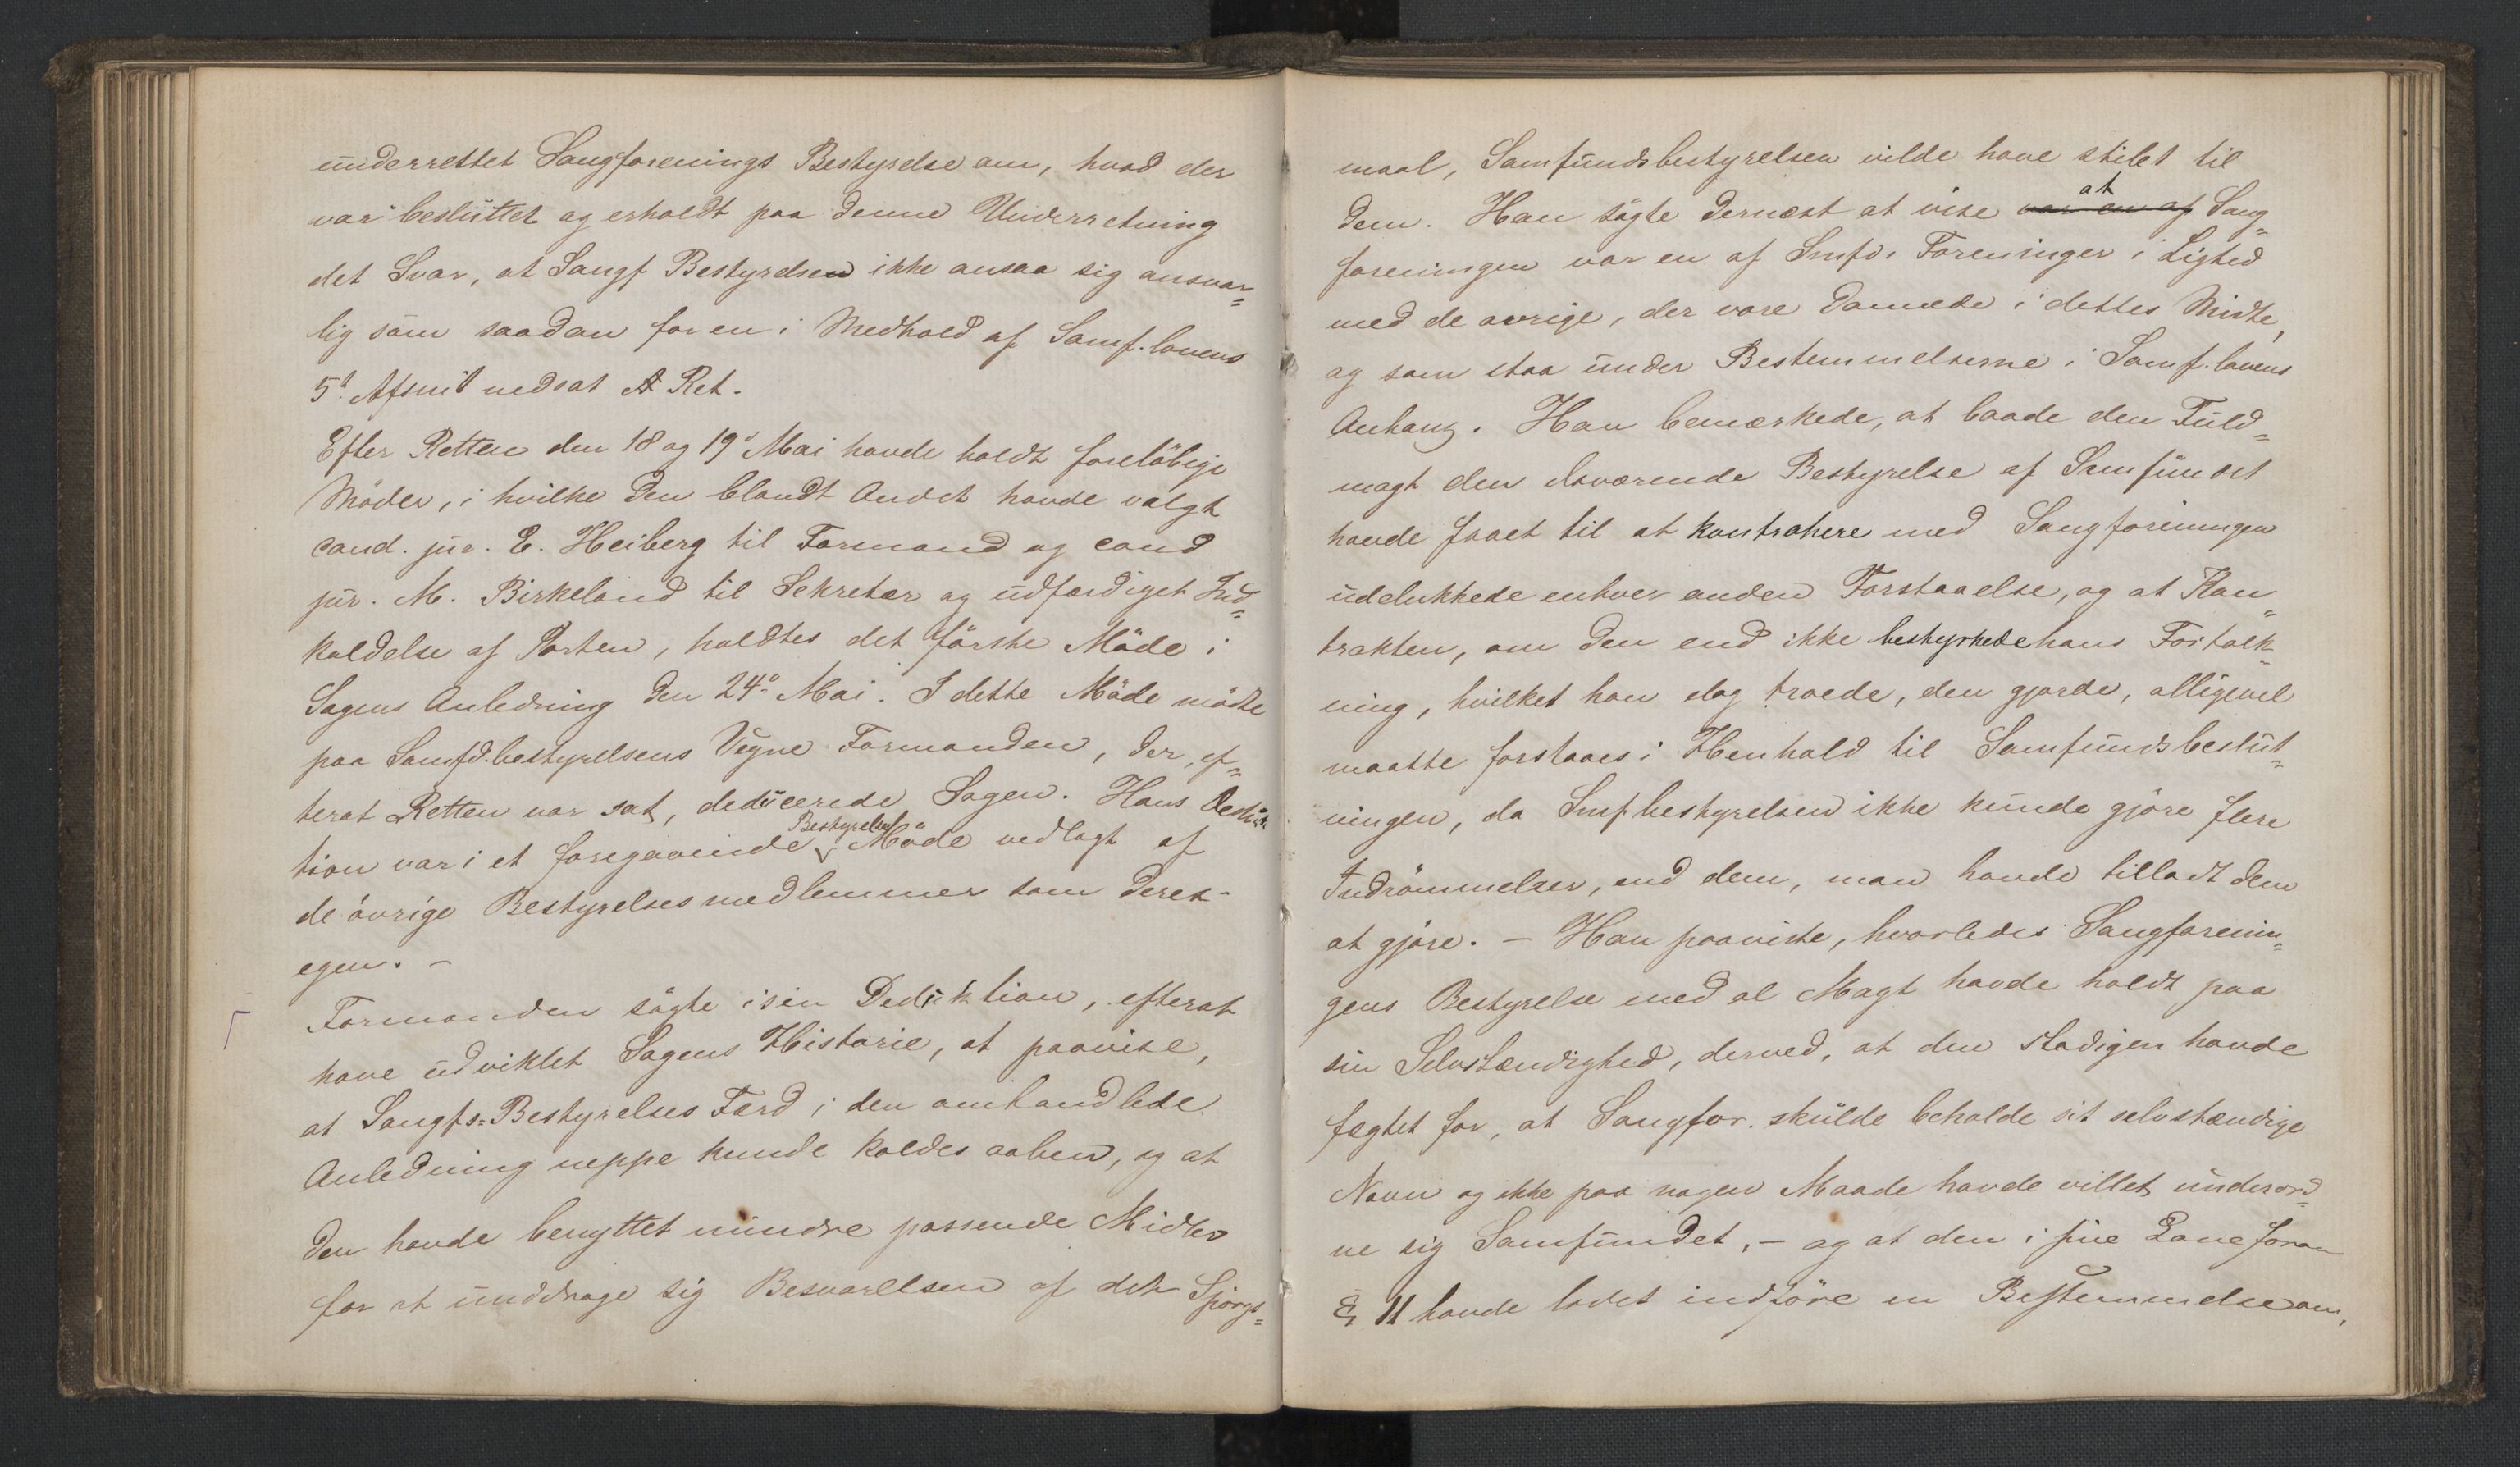 underrettet Sangforenings Bestyrelse om, hvad der
var besluttet og erholdt paa denne Underretning
det Svar, at Sangf Bestyrelsen ikke ansaa sig ansvar=
lig som saadan for en i Medhold af Samf.lovens
5t Afsnit nedsat Ret.
Efter Retten den 18 og 19d Mai havde holdt foreløbige
Møder, i hvilke den blandt Andet havde valgt
cand. jur. E. Heiberg til Formand og cand
jur. M. Birkeland til Sekretær og udfærdiget Ind=
kaldelse af Parten, holdtes det første Møde i
Sagens Anledning den 24de Mai. I dette Møde mødte
paa Samfd.bestyrelsens Vegne Formanden, der, ef=
terat Retten var sat, deducerede Sagen. Hans Deduk
tion var i et foregaaende Bestyrelses Møde vedtagt af
de øvrige Bestyrelsesmedlemmer som Deres
egen. –
Formanden søgte i sin Deduktion, efterat
have udviklet Sagens Historie, at paavise,
at Sangfs=Bestyrelses Færd i den omhandlede
Anledning neppe kunde kaldes aaben, og at
den havde benyttet mindre passende Midler
for at unddrage sig Besvarelsen af det Spørgs=
maal, Samfundsbestyrelsen vilde have stilet til
dem. Han søgte dernæst at vise var en af at Sang=
foreningen var en af Smfds Foreninger i Lighed
med de øvrige, der vare Dannede i dettes Midte,
og som staa under Bestemmelserne i Samf.lovens
Anhang. Han bemærkede, at baade den Fuld=
magt den daværende Bestyrelse af Samfundet
havde faaet til at kontrahere med Sangforeningen
udelukkede enhver anden Forstaaelse, og at Kon=
trakten, om den end ikke bestyrkede hans Fortolk=
ning, hvilket han dog troede, den gjorde, alligevel
maatte forstaaes i Henhold til Samfundsbeslut=
ningen, da Smfbestyrelsen ikke kunde gjøre flere
Indrømmelser, end dem, man havde tilladt dem
at gjøre. – Han paaviste, hvorledes Sangforenin=
gens Bestyrelse med al Magt havde holdt paa
sin Selvstændighed, derved, at den stadigen havde
fægtet for, at Sangfor. skulde beholde sit selvstændige
Navn og ikke paa nogen Maade havde villet underord=
ne sig Samfundet, – og at den i sine Love foran
§ 11 havde ladet indføre en Bestemmelse om,